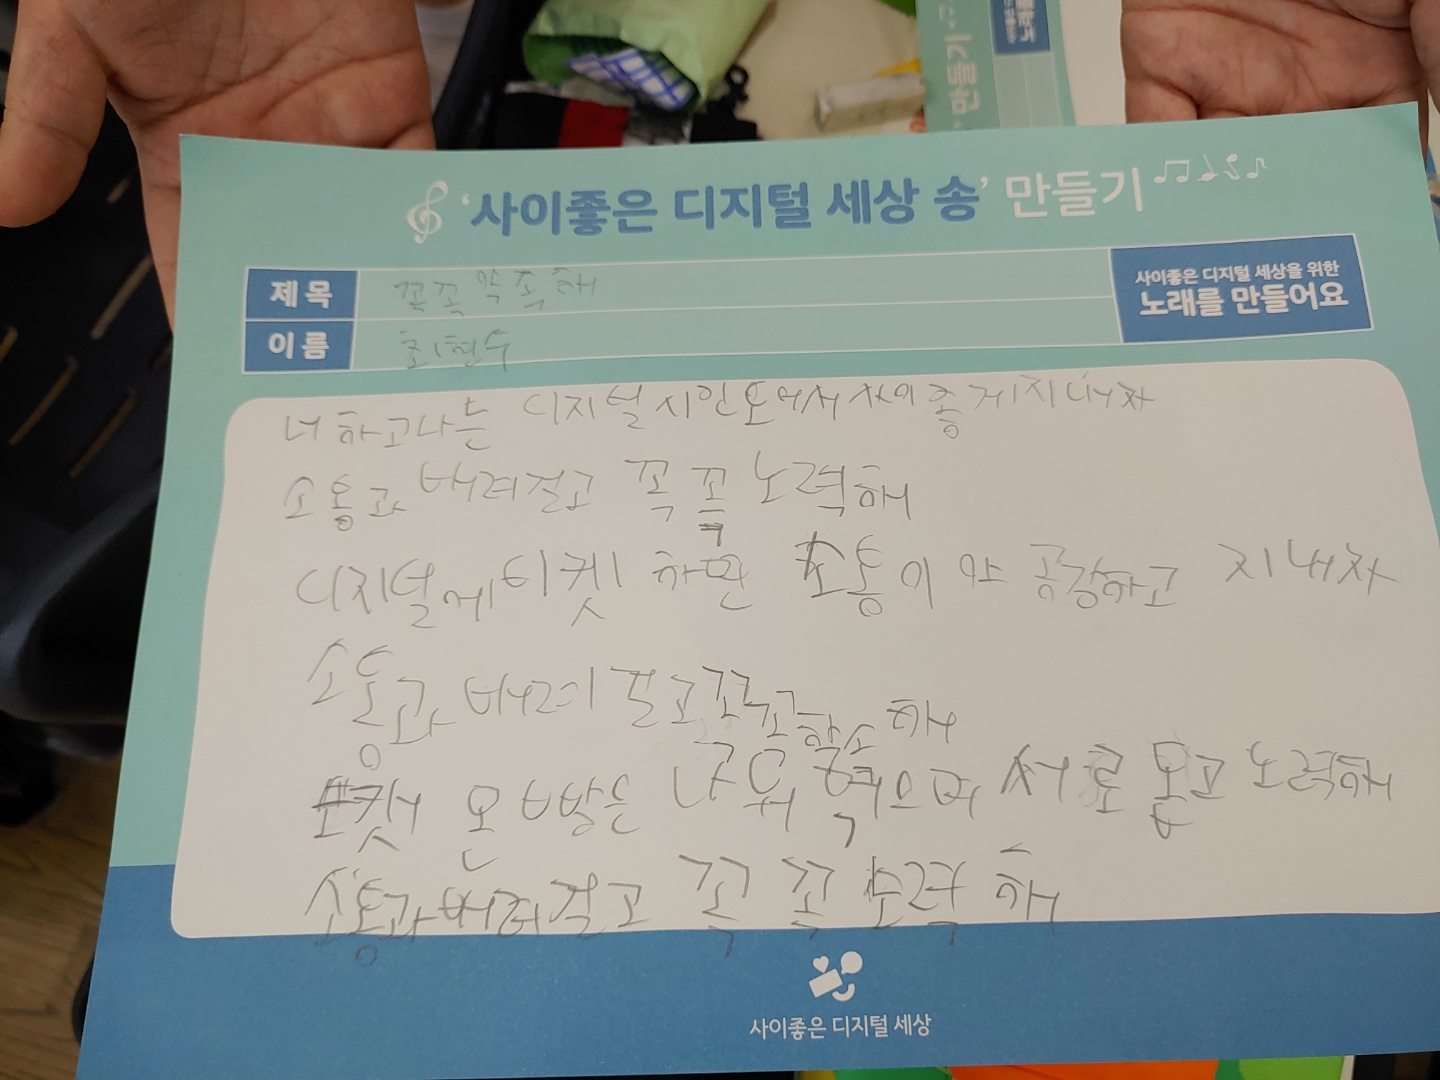 '사이좋은 디지털 세상 송' 만들기
제목 꼭꼭약속해
이름 최현수
사이좋은 디지털 세상을 위한
노래를 만들어요
너하고나는 디지털시민으서 사이좋게지내자
소통과 배려걸고 꼭 꼭 노력해
디지털에티켓 하면 소통이 야 공강하고 지내자
소통과 배려 걸고꼭꼭약속해
은 나 서로 돕고 노력해
소통과배려걸고 꼭 꼭 노력 해
사이좋은 디지털 세상
만들기